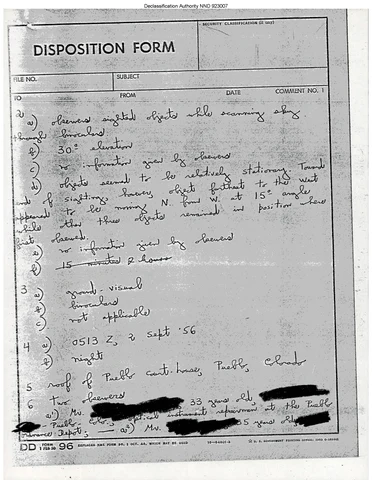 Declassification Authority NND 923007
SECURITY CLASSIFICATION (If any)
DISPOSITION FORM
FILE NO. SUBJECT
TO FROM DATE COMMENT NO. 1
2 a) observers sighted objects while scanning sky
through binoculars
b) 30° elevation
c) no information given by observers
d) objects seemed to be relatively stationary. Toward
end of sighting, however, object farthest to the West
appeared to be moving N. from W. at 15° angle
while other three objects remained in position where
first observed.
e) no information given by observers
f) 15 minutes 2 hours
3 a) ground-visual
b) binoculars
c) not applicable
4 a) 0513 Z, 2 Sept '56
b) night
5 roof of Pueblo court-house, Pueblo, Colorado
6 two observers
a) Mr. 33 years old,
Pueblo, Colo., optical instrument repairman at the Pueblo
Ordnance Depot; a) Mr. 35 years old
DD FORM 1 FEB 50 96